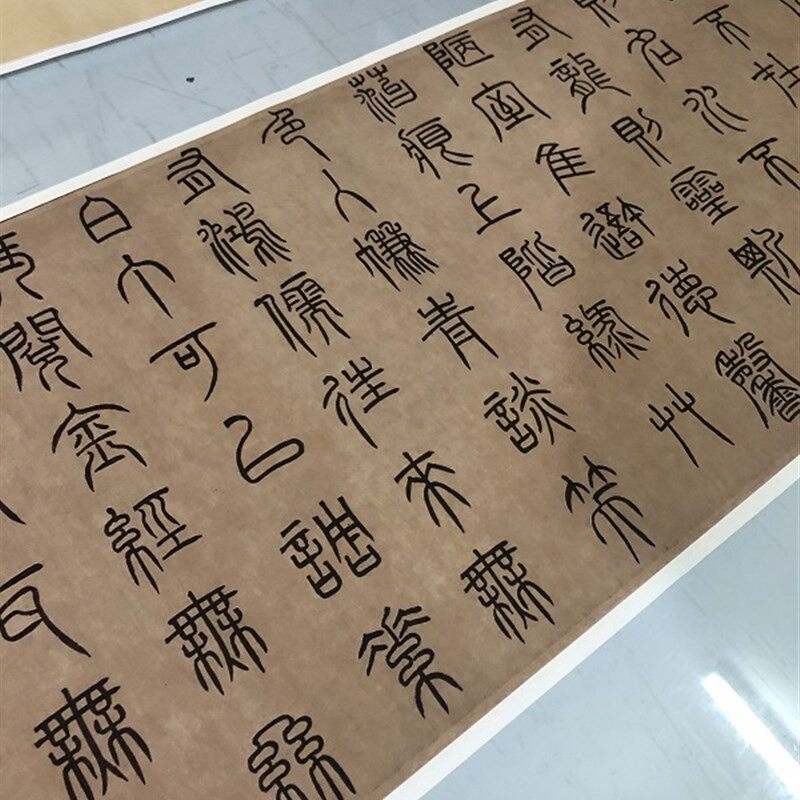 不在
則名水不
有龍則靈斯
陋室惟吾德馨
苔痕上階綠艸
色入簾青談笑
有鴻儒往來無
白丁可以調素
琴閱金經無絲
耳無